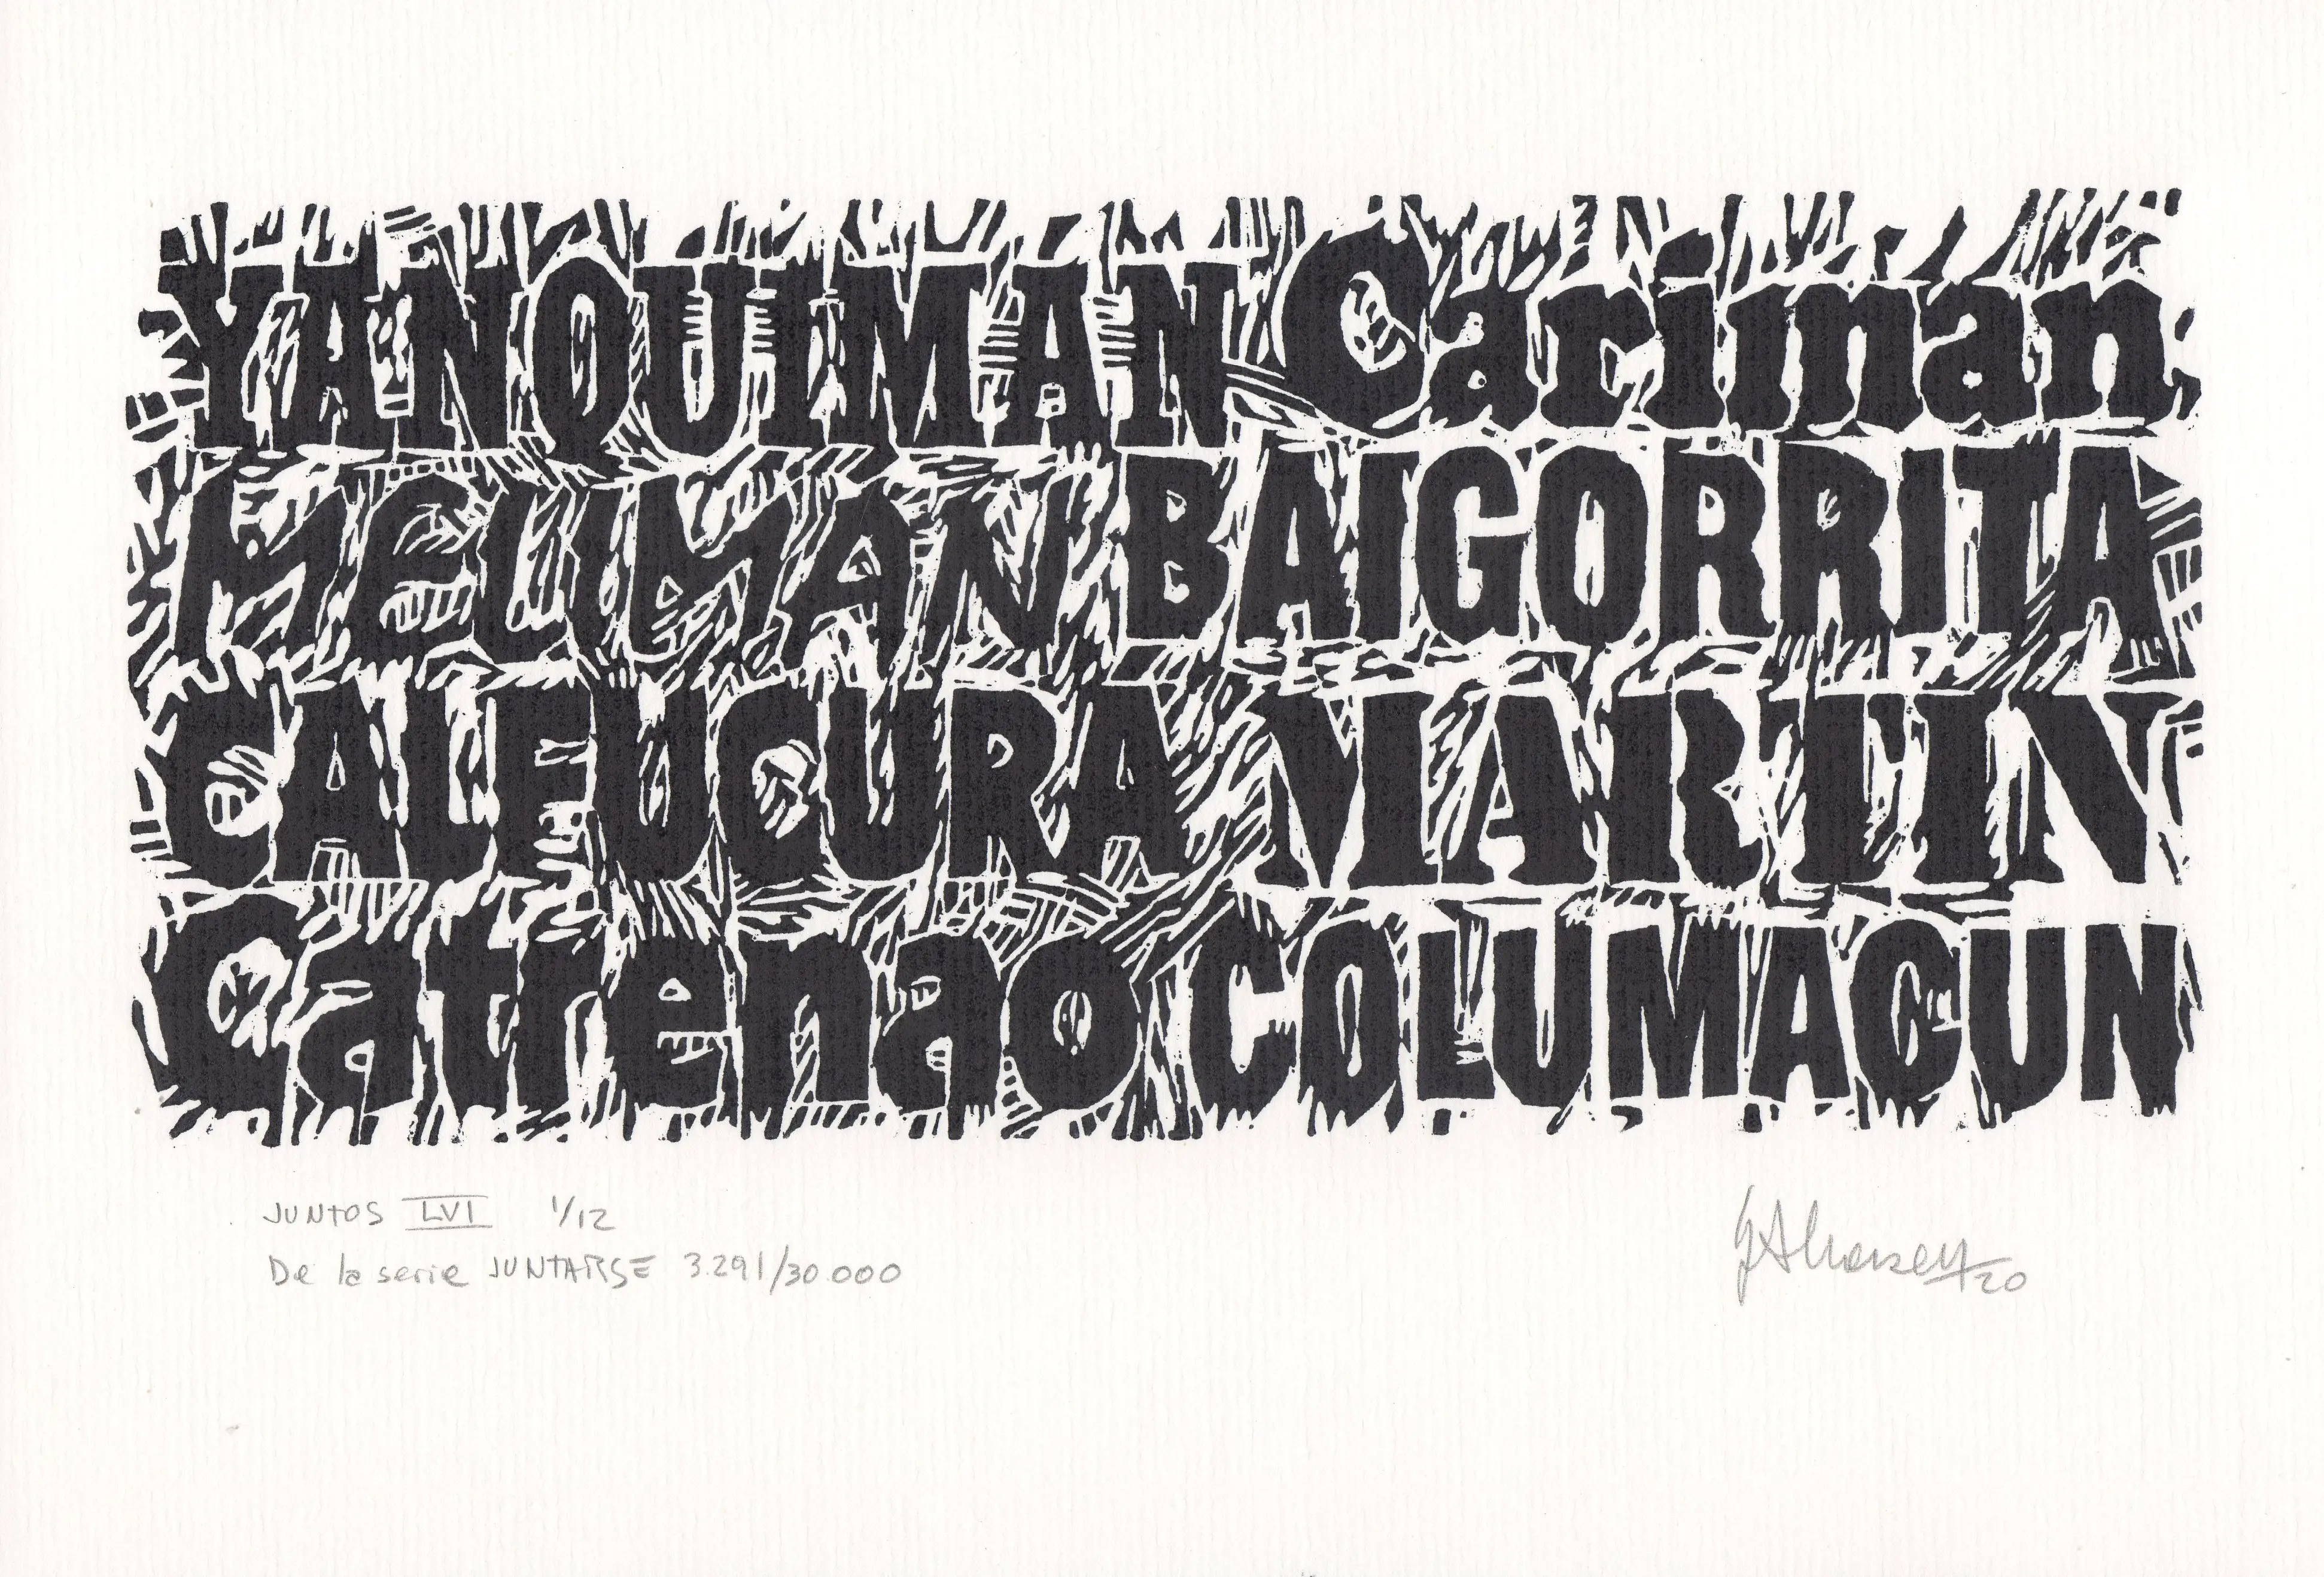 YANQUIMAN Cariman
MELIMAN BAIGORRITA
CALFUCURA MARTIN
Catrenao COLUMACUN
JUNTOS LVI 1/12
De la serie JUNTARSE 3.291/30.000
20